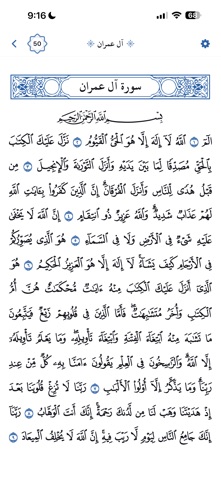 9:16
68
آل عمران
50
سورة آل عمران
بِسْمِ ٱللَّهِ ٱلرَّحْمَٰنِ ٱلرَّحِيمِ
الٓمٓ ١ ٱللَّهُ لَآ إِلَٰهَ إِلَّا هُوَ ٱلْحَىُّ ٱلْقَيُّومُ ٢ نَزَّلَ عَلَيْكَ ٱلْكِتَٰبَ
بِٱلْحَقِّ مُصَدِّقًا لِّمَا بَيْنَ يَدَيْهِ وَأَنزَلَ ٱلتَّوْرَىٰةَ وَٱلْإِنجِيلَ ٣ مِن
قَبْلُ هُدًى لِّلنَّاسِ وَأَنزَلَ ٱلْفُرْقَانَ إِنَّ ٱلَّذِينَ كَفَرُوا۟ بِـَٔايَٰتِ ٱللَّهِ
لَهُمْ عَذَابٌ شَدِيدٌ وَٱللَّهُ عَزِيزٌ ذُو ٱنتِقَامٍ ٤ إِنَّ ٱللَّهَ لَا يَخْفَىٰ
عَلَيْهِ شَىْءٌ فِى ٱلْأَرْضِ وَلَا فِى ٱلسَّمَآءِ ٥ هُوَ ٱلَّذِى يُصَوِّرُكُمْ
فِى ٱلْأَرْحَامِ كَيْفَ يَشَآءُ لَآ إِلَٰهَ إِلَّا هُوَ ٱلْعَزِيزُ ٱلْحَكِيمُ ٦ هُوَ
ٱلَّذِىٓ أَنزَلَ عَلَيْكَ ٱلْكِتَٰبَ مِنْهُ ءَايَٰتٌ مُّحْكَمَٰتٌ هُنَّ أُمُّ
ٱلْكِتَٰبِ وَأُخَرُ مُتَشَٰبِهَٰتٌ فَأَمَّا ٱلَّذِينَ فِى قُلُوبِهِمْ زَيْغٌ فَيَتَّبِعُونَ
مَا تَشَٰبَهَ مِنْهُ ٱبْتِغَآءَ ٱلْفِتْنَةِ وَٱبْتِغَآءَ تَأْوِيلِهِۦ وَمَا يَعْلَمُ تَأْوِيلَهُۥٓ
إِلَّا ٱللَّهُ وَٱلرَّٰسِخُونَ فِى ٱلْعِلْمِ يَقُولُونَ ءَامَنَّا بِهِۦ كُلٌّ مِّنْ عِندِ
رَبِّنَا وَمَا يَذَّكَّرُ إِلَّآ أُو۟لُوا۟ ٱلْأَلْبَٰبِ ٧ رَبَّنَا لَا تُزِغْ قُلُوبَنَا بَعْدَ
إِذْ هَدَيْتَنَا وَهَبْ لَنَا مِن لَّدُنكَ رَحْمَةً إِنَّكَ أَنتَ ٱلْوَهَّابُ ٨ رَبَّنَآ
إِنَّكَ جَامِعُ ٱلنَّاسِ لِيَوْمٍ لَّا رَيْبَ فِيهِ إِنَّ ٱللَّهَ لَا يُخْلِفُ ٱلْمِيعَادَ ٩